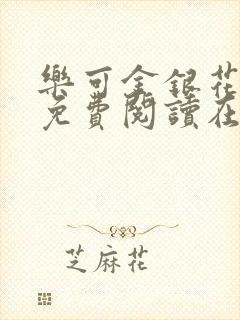 樂可金銀花
免費閱讀在
芝麻花